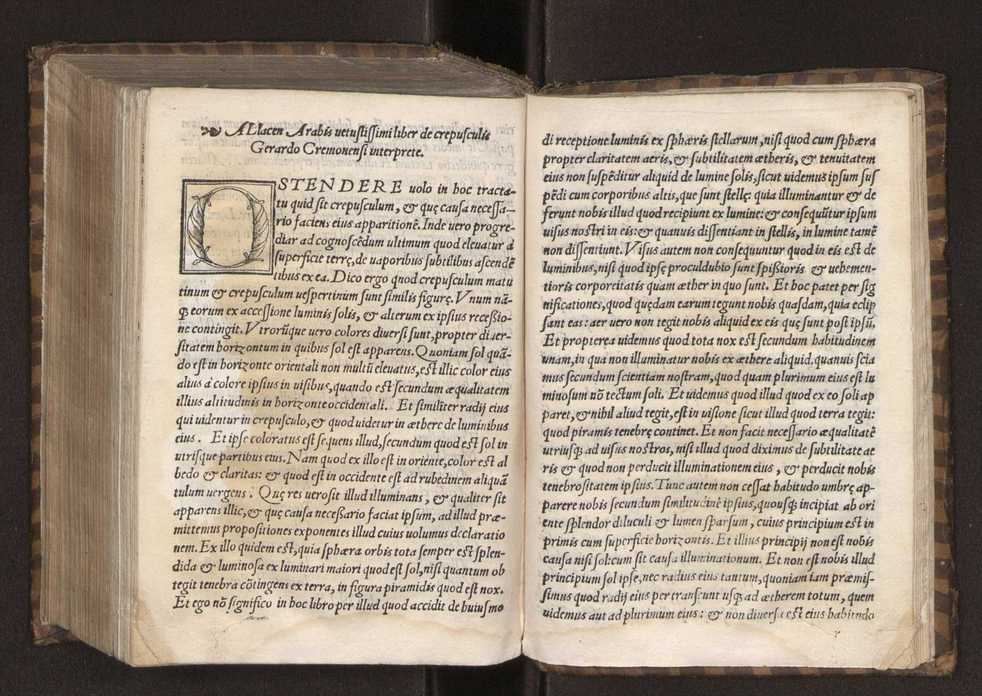 ALlacen Arabis uetustissimi liber de crepusculis
Gerardo Cremonensi interprete.
OSTENDERE uolo in hoc tracta-
tu quid sit crepusculum, & quę causa necessa-
rio faciens eius apparitionē. Inde uero progre
diar ad cognoscēdum ultimum quod eleuatur à
superficie terrę, de uaporibus subtilibus ascendē
tibus ex ea. Dico ergo quod crepusculum matu
tinum & crepusculum uespertinum sunt similis figurę. Vnum nāq
q̃ eorum ex accessione luminis solis, & alterum ex ipsius recessio-
ne contingit. Vtrorūque uero colores diuersi sunt, propter diuer-
sitatem horizontum in quibus sol est apparens. Quoniam sol quā-
do est in horizonte orientali non multū eleuatus, est illic color eius
alius à colore ipsius in uisibus, quando est secundum æqualitatem
illius altitudinis in horizonte occidentali. Et similiter radij eius
qui uidentur in crepusculo, & quod uidetur in æthere de luminibus
eius. Et ipse coloratus est sequens illud, secundum quod est sol in
utrisque partibus eius. Nam quod ex illo est in oriente, color est al
bedo & claritas: & quod est in occidente est ad rubedinem aliquā
tulum uergens. Quę res uero sit illud illuminans, & qualiter sit
apparens illic, & quę causa necessario faciat ipsum, ad illud præ-
mittemus propositiones exponentes illud cuius uolumus declaratio
nem. Ex illo quidem est, quia sphæra orbis tota semper est splen-
dida & luminosa ex luminari maiori quod est sol, nisi quantum ob
tegit tenebra cōtingens ex terra, in figura piramidis quod est nox.
Et ego nō significo in hoc libro per illud quod accidit de huiusmo
di receptione luminis ex sphæris stellarum, nisi quod cum sphæra
propter claritatem aeris, & subtilitatem ætheris, & tenuitatem
eius non suspēditur aliquid de lumine solis, sicut uidemus ipsum sus
pēdi cum corporibus altis, que sunt stellę: quia illuminantur & de
ferunt nobis illud quod recipiunt ex lumine: & consequūtur ipsum
uisus nostri in eis: & quanuis dissentiant in stellis, in lumine tamē
non dissentiunt. Visus autem non consequuntur quod in eis est de
luminibus, nisi quod ipsę proculdubio sunt spissioris & uehemen-
tioris corporeitatis quam æther in quo sunt. Et hoc patet per sig
nificationes, quod quędam earum tegunt nobis quasdam, quia eclip
sant eas: aer uero non tegit nobis aliquid ex eis quę sunt post ipsū.
Et propterea uidemus quod tota nox est secundum habitudinem
unam, in qua non illuminatur nobis ex æthere aliquid, quanuis scia
mus secundum scientiam nostram, quod quam plurimum eius est lu
minosum nō tectum soli. Et uidemus quod illud quod ex eo soli ap
paret, & nihil aliud tegit, est in uisione sicut illud quod terra tegit:
quod piramis tenebrę continet. Et non facit necessario æqualitatē
utriusq; ad uisus nostros, nisi illud quod diximus de subtilitate ae
ris & quod non perducit illuminationem eius, & perducit nobis
tenebrositatem ipsius. Tunc autem non cessat habitudo umbrę ap-
parere nobis secundum similitudinē ipsius, quousq; incipiat ab ori
ente splendor diluculi & lumen sparsum, cuius principium est in
primis cum superficie horizontis. Et illius principij non est nobis
causa nisi sol: cum sit causa illuminationum. Et non est nobis illud
principium sol ipse, nec radius eius tantum, quoniam iam præmis-
simus quod radij eius pertranseunt usq; ad ætherem totum, quem
uidemus aut ad plurimum eius: & non diuersa est eius habitudo